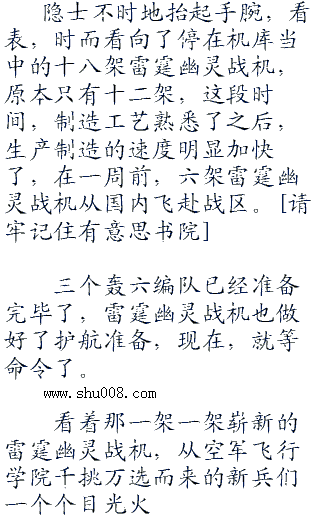 隐士不时地抬起手腕，看
表，时而看向了停在机库当
中的十八架雷霆幽灵战机，
原本只有十二架，这段时
间，制造工艺熟悉了之后，
生产制造的速度明显加快
了，在一周前，六架雷霆幽
灵战机从国内飞赴战区。[请
牢记住有意思书院]
三个轰六编队已经准备
完毕了，雷霆幽灵战机也做
好了护航准备，现在，就等
命令了。
www.shu008.com
看着那一架一架崭新的
雷霆幽灵战机，从空军飞行
学院千挑万选而来的新兵们
一个个目光火